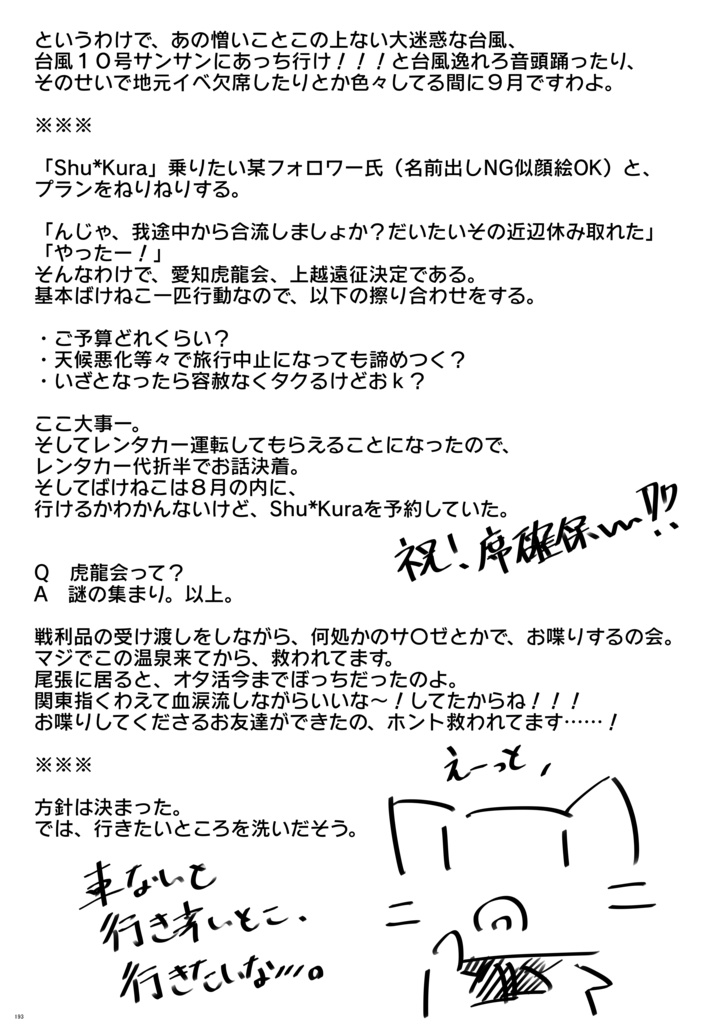 というわけで、あの憎いことこの上ない大迷惑な台風、
台風１０号サンサンにあっち行け！！！と台風逸れろ音頭踊ったり、
そのせいで地元イベ欠席したりとか色々してる間に９月ですわよ。
※※※
「Shu*Kura」乗りたい某フォロワー氏（名前出しNG似顔絵OK）と、
プランをねりねりする。
「んじゃ、我途中から合流しましょか？だいたいその近辺休み取れた」
「やったー！」
そんなわけで、愛知虎龍会、上越遠征決定である。
基本ばけねこ一匹行動なので、以下の擦り合わせをする。
・ご予算どれくらい？
・天候悪化等々で旅行中止になっても諦めつく？
・いざとなったら容赦なくタクるけどおｋ？
ここ大事ー。
そしてレンタカー運転してもらえることになったので、
レンタカー代折半でお話決着。
そしてばけねこは８月の内に、
行けるかわかんないけど、Shu*Kuraを予約していた。
祝！席確保ー!!
Q　虎龍会って？
A　謎の集まり。以上。
戦利品の受け渡しをしながら、何処かのサ〇ゼとかで、お喋りするの会。
マジでこの温泉来てから、救われてます。
尾張に居ると、オタ活今までぼっちだったのよ。
関東指くわえて血涙流しながらいいな～！してたからね！！！
お喋りしてくださるお友達ができたの、ホント救われてます……！
※※※
えーっと、
方針は決まった。
では、行きたいところを洗いだそう。
車ないと
行き辛いとこ、
行きたいな…。
193